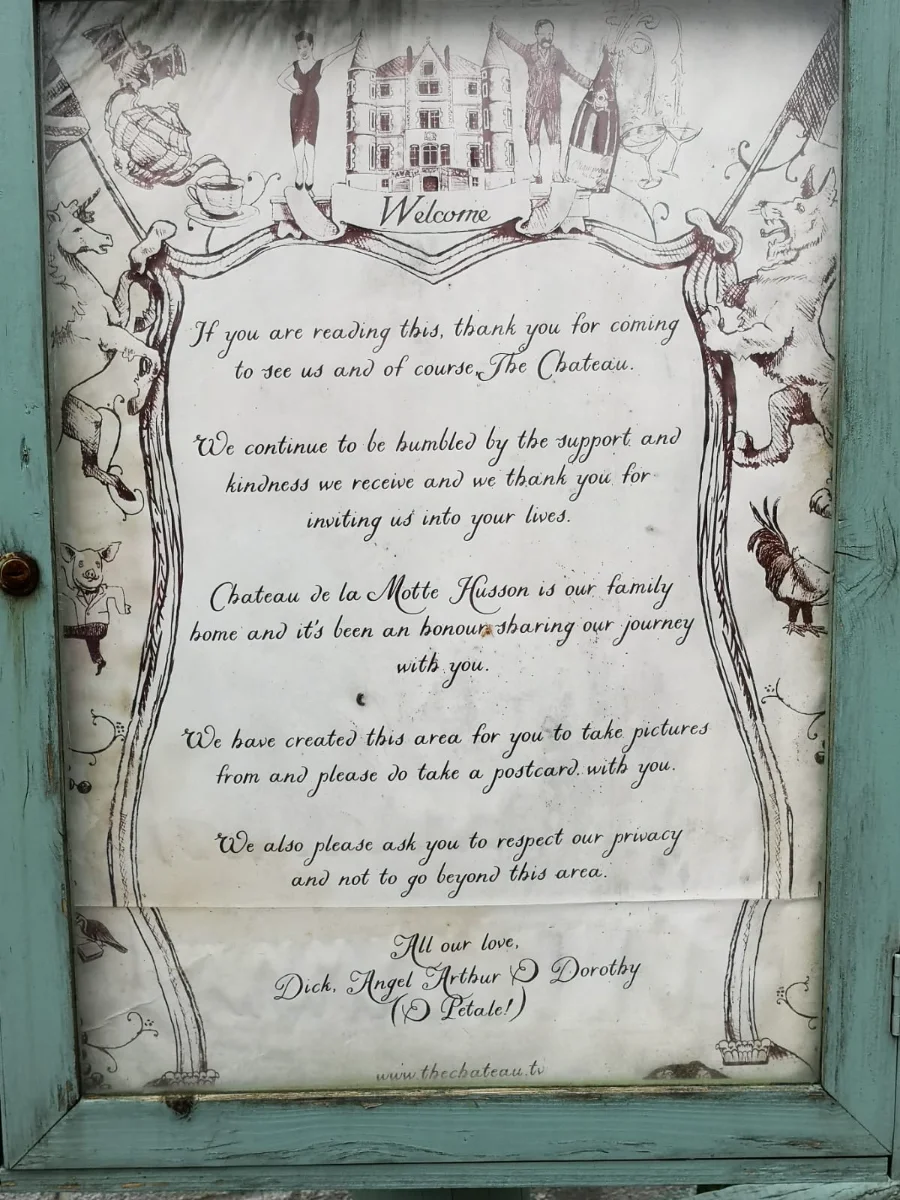 Welcome
If you are reading this, thank you for coming
to see us and of course, The Chateau.
We continue to be humbled by the support and
kindness we receive and we thank you for
inviting us into your lives.
Chateau de la Motte Husson is our family
home and it's been an honour sharing our journey
with you.
We have created this area for you to take pictures
from and please do take a postcard with you.
We also please ask you to respect our privacy
and not to go beyond this area.
All our love,
Dick, Angel Arthur & Dorothy
(& Petale!)
www.thechateau.tv